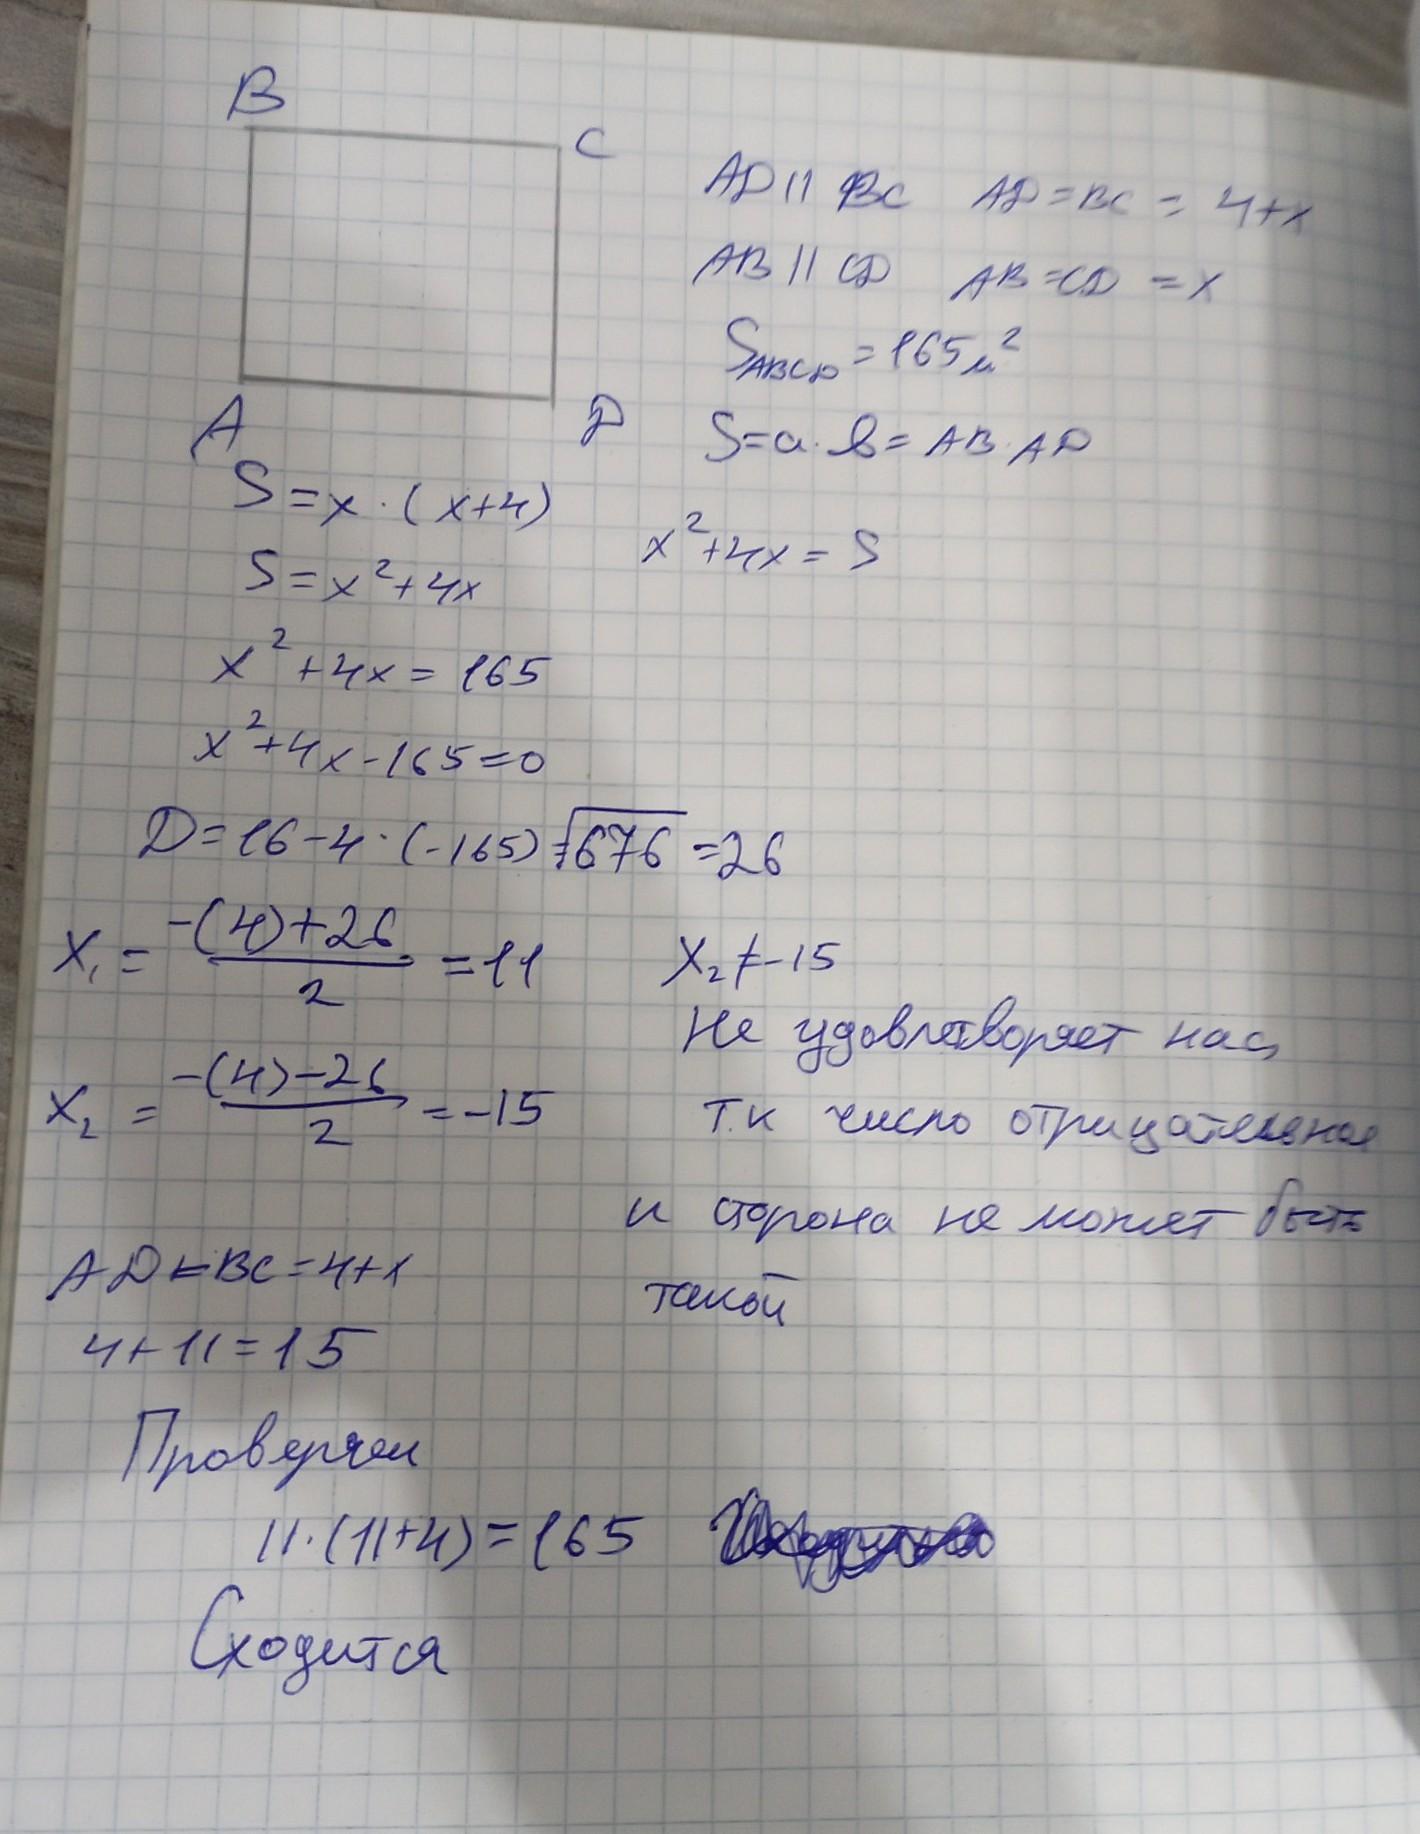 B
C
AD || BC AD = BC = 4+x
AB || CD AB = CD = x
S_ABCD = 165 м²
A
D
S = a · b = AB · AD
S = x · (x+4)
x² + 4x = S
S = x² + 4x
x² + 4x = 165
x² + 4x - 165 = 0
D = 16 - 4 · (-165) = √676 = 26
x₁ = (-(4)+26)/2 = 11
x₂ ≠ -15
Не удовлетворяет нас,
x₂ = (-(4)-26)/2 = -15
т.к число отрицательное
и сторона не может быть
такой
AD = BC = 4+x
4+11 = 15
Проверяем
11 · (11+4) = 165
Сходится